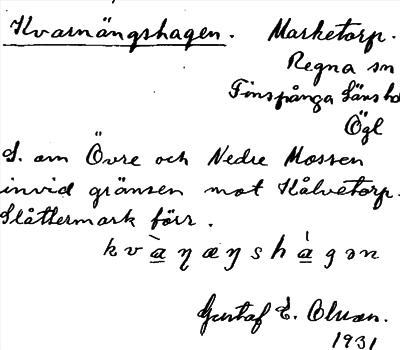 Kvarnängshagen. Marketorp.
Regna sn
Finspånga läns hd
Ögl
S. om Övre och Nedre Mossen
invid gränsen mot Kålvetorp.
Slåttermark förr.
kvàŋæŋshágən
Gustaf E. Olsson.
1931